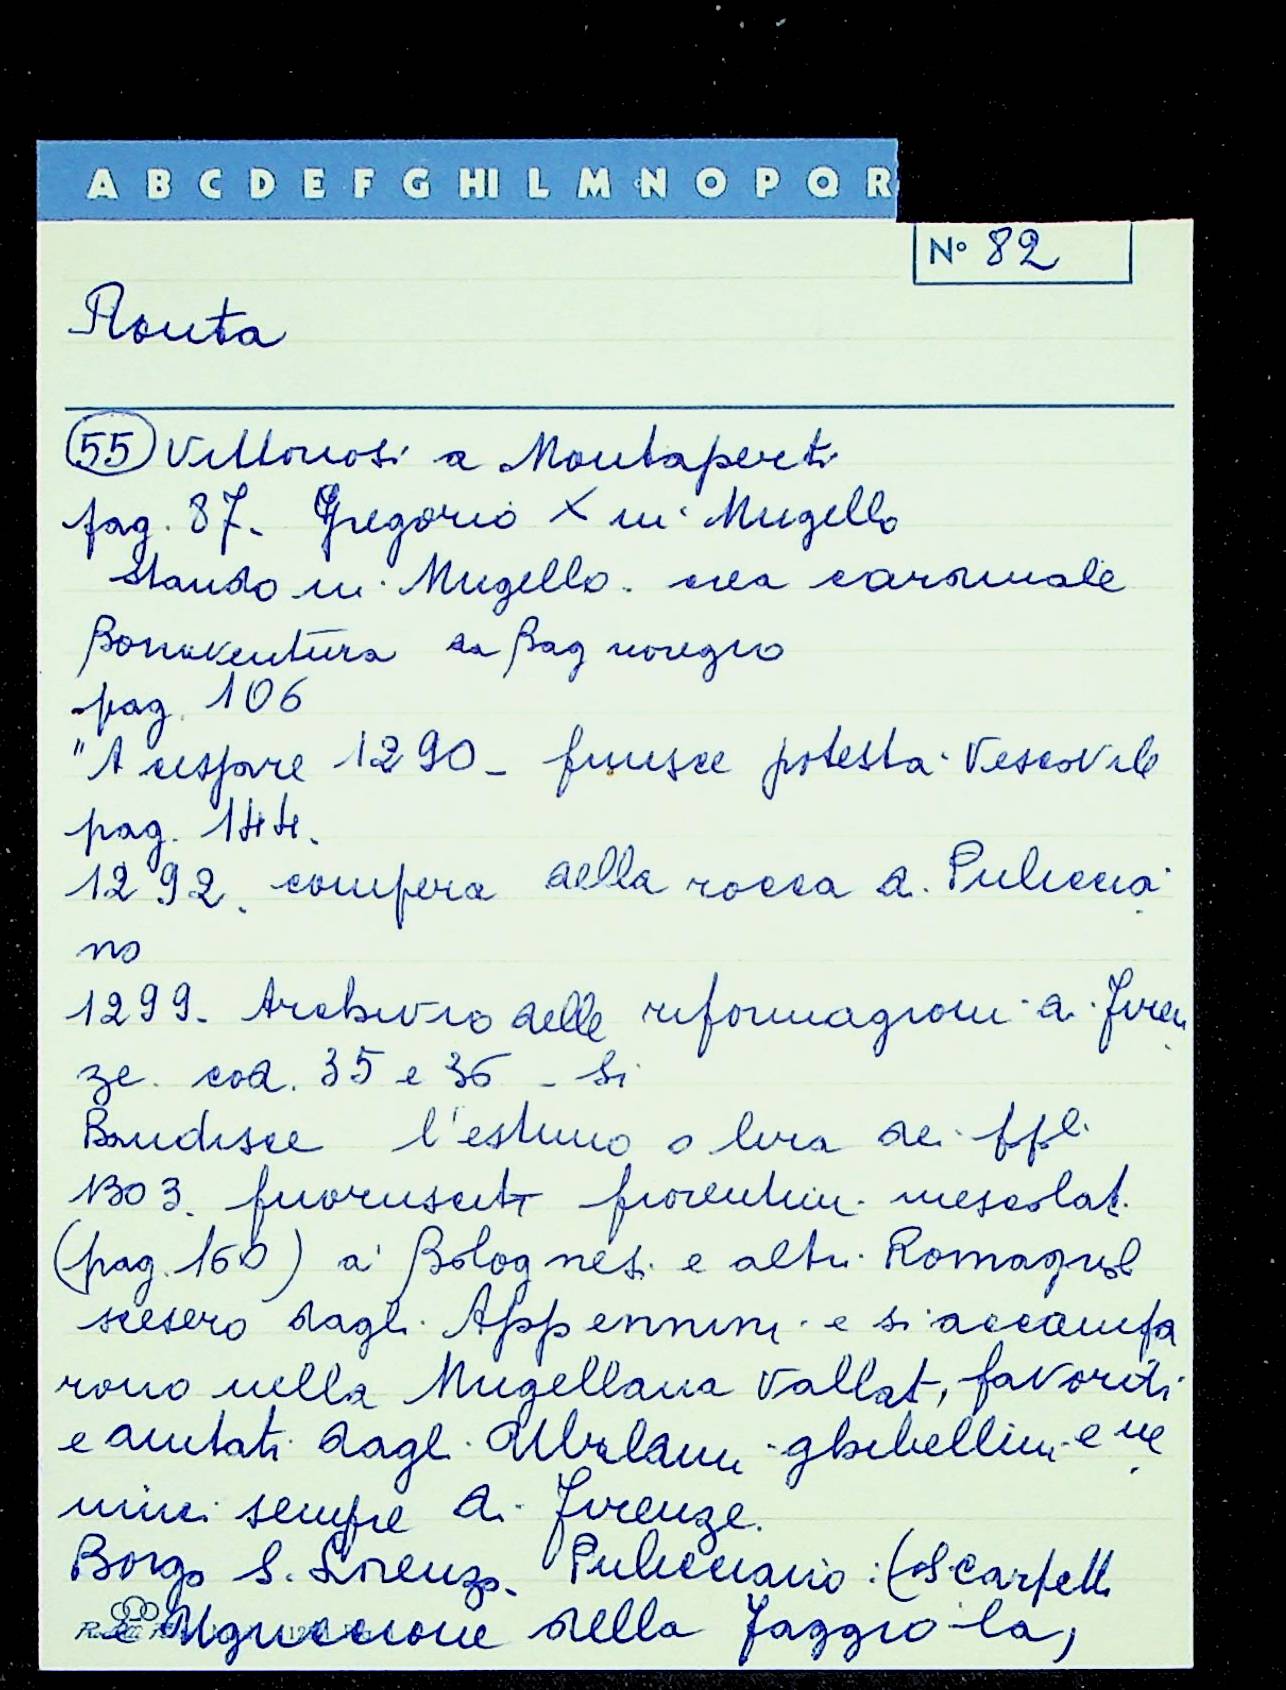 A B C D E F G HI L M N O P Q R
N° 82
Ronta
55 Vittoriosi a Montaperti
pag. 87. Gregorio X in Mugello
stando in Mugello. crea cardinale
Bonaventura da Bagnoregio
pag. 106
"A cespore 1290 - finisce potestà Vescovile
pag. 144.
1292. compera della rocca di Puliccia
no
1299. Archivio delle riformagioni di Firen
ze. cod. 35 e 36 - Si
Bandisce l'estimo o lira dei ffl.
1303. fuorusciti fiorentini mescolati
(pag. 160) a' Bolognesi e altri Romagnol
scesero dagli Appennini e si accampa
rono nella Mugellana Vallat, favoriti
e aiutati dagli Ubaldini ghibellini e ne
mici sempre di Firenze.
Borgo S. Lorenzo. Pulicciano: (Scarpetti
e Uguccione della Faggiola,